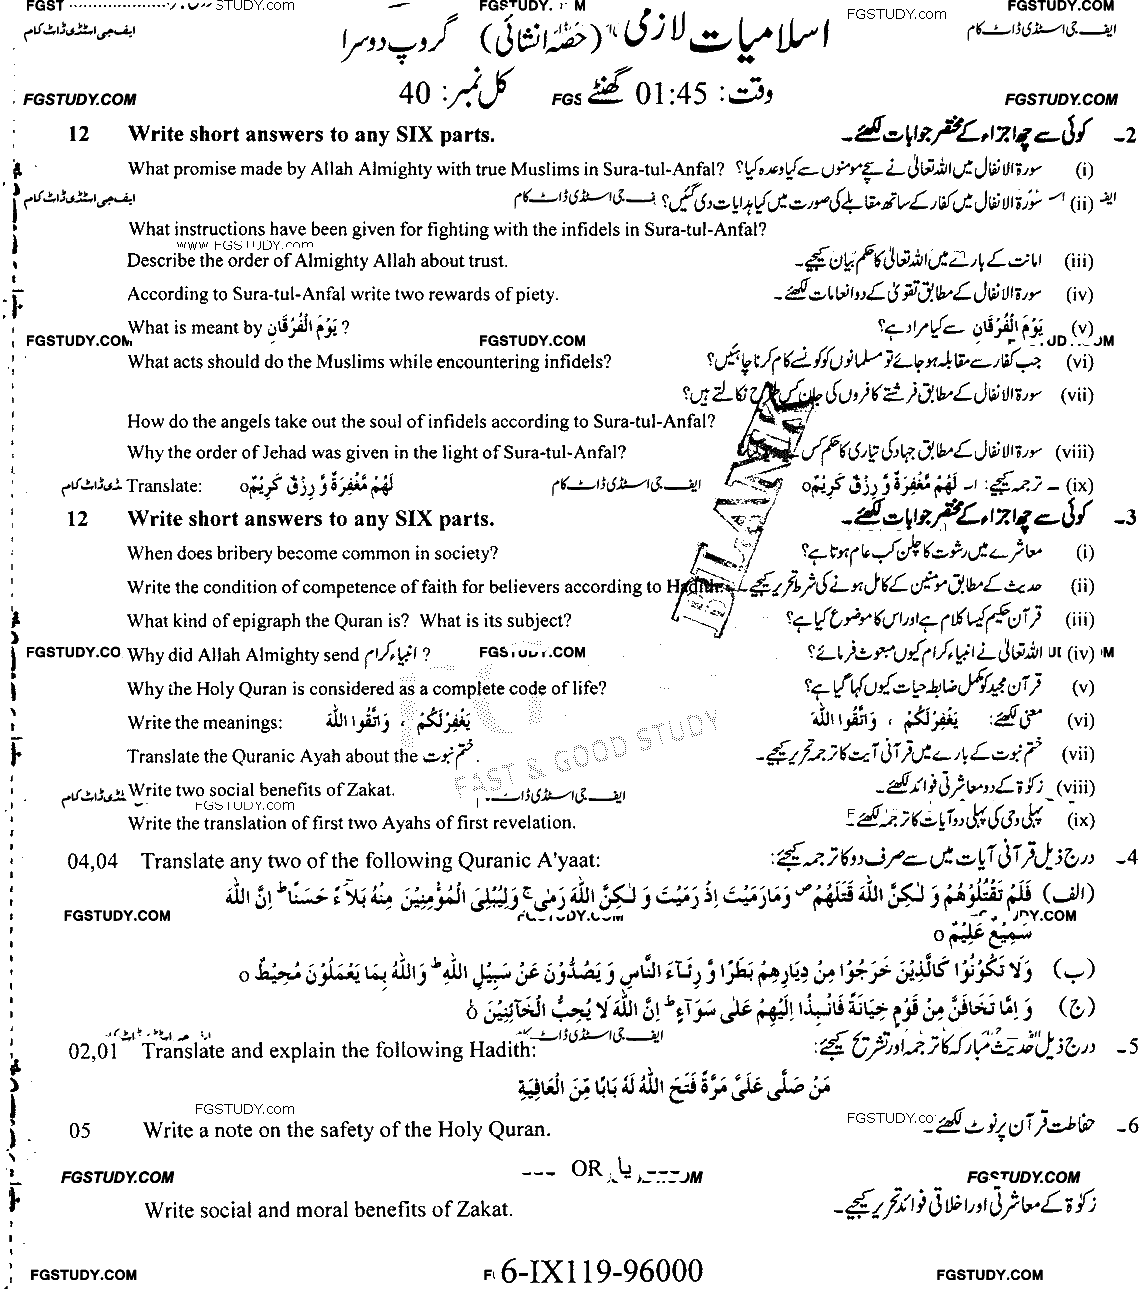 FGSTUDY.COM FGSTUDY.com FGSTUDY.COM
ایف جی اسٹڈی ڈاٹ کام اسلامیات لازمی (حصّہ انشائی) گروپ دوسرا ایف جی اسٹڈی ڈاٹ کام
FGSTUDY.COM وقت: 01:45 گھنٹے FGS کل نمبر: 40 FGSTUDY.COM
2۔ کوئی سے چھ اجزاء کے مختصر جوابات لکھئے۔ Write short answers to any SIX parts. 12
(i) سورۃ الانفال میں اللہ تعالیٰ نے سچے مومنوں سے کیا وعدہ کیا؟ What promise made by Allah Almighty with true Muslims in Sura-tul-Anfal?
(ii) سورۃ الانفال میں کفار کے ساتھ مقابلے کی صورت میں کیا ہدایات دی گئیں؟ ایف جی اسٹڈی ڈاٹ کام
What instructions have been given for fighting with the infidels in Sura-tul-Anfal?
www.FGSTUDY.com
(iii) امانت کے بارے میں اللہ تعالیٰ کا حکم بیان کیجیے۔ Describe the order of Almighty Allah about trust.
(iv) سورۃ الانفال کے مطابق تقویٰ کے دو انعامات لکھئے۔ According to Sura-tul-Anfal write two rewards of piety.
(v) یَوْمَ الْفُرْقَانِ سے کیا مراد ہے؟ What is meant by یَوْمَ الْفُرْقَانِ ?
FGSTUDY.COM FGSTUDY.COM
(vi) جب کفار سے مقابلہ ہو جائے تو مسلمانوں کو کونسے کام کرنا چاہئیں؟ What acts should do the Muslims while encountering infidels?
(vii) سورۃ الانفال کے مطابق فرشتے کافروں کی جان کس طرح نکالتے ہیں؟
How do the angels take out the soul of infidels according to Sura-tul-Anfal?
(viii) سورۃ الانفال کے مطابق جہاد کی تیاری کا حکم کس Why the order of Jehad was given in the light of Sura-tul-Anfal?
(ix) ترجمہ کیجیے: لَهُمْ مَّغْفِرَةٌ وَّ رِزْقٌ كَرِيْمٌo ایف جی اسٹڈی ڈاٹ کام Translate: لَهُمْ مَّغْفِرَةٌ وَّ رِزْقٌ كَرِيْمٌo
BLANK
3۔ کوئی سے چھ اجزاء کے مختصر جوابات لکھئے۔ Write short answers to any SIX parts. 12
(i) معاشرے میں رشوت کا چلن کب عام ہوتا ہے؟ When does bribery become common in society?
(ii) حدیث کے مطابق مومنین کے کامل ہونے کی شرط تحریر کیجیے۔ Write the condition of competence of faith for believers according to Hadith.
(iii) قرآن حکیم کیسا کلام ہے اور اس کا موضوع کیا ہے؟ What kind of epigraph the Quran is? What is its subject?
(iv) اللہ تعالیٰ نے انبیاء کرام کیوں مبعوث فرمائے؟ FGSTUDY.COM Why did Allah Almighty send انبیاء کرام ? FGSTUDY.CO
(v) قرآن مجید کو مکمل ضابطہ حیات کیوں کہا گیا ہے؟ Why the Holy Quran is considered as a complete code of life?
(vi) معنی لکھئے: يَغْفِرْلَكُمْ ، وَاتَّقُوا اللهَ Write the meanings: يَغْفِرْلَكُمْ ، وَاتَّقُوا اللهَ
(vii) ختم نبوت کے بارے میں قرآنی آیت کا ترجمہ تحریر کیجیے۔ Translate the Quranic Ayah about the ختم نبوت.
FAST & GOOD STUDY
(viii) زکوٰۃ کے دو معاشرتی فوائد لکھئے۔ ایف جی اسٹڈی ڈاٹ کام Write two social benefits of Zakat.
FGSTUDY.com
(ix) پہلی وحی کی پہلی دو آیات کا ترجمہ لکھئے۔ Write the translation of first two Ayahs of first revelation.
4۔ درج ذیل قرآنی آیات میں سے صرف دو کا ترجمہ کیجئے: Translate any two of the following Quranic A'yaat: 04,04
(الف) فَلَمْ تَقْتُلُوْهُمْ وَ لٰكِنَّ اللهَ قَتَلَهُمْ ص وَمَارَمَيْتَ اِذْ رَمَيْتَ وَ لٰكِنَّ اللهَ رَمٰى ج وَلِيُبْلِىَ الْمُؤْمِنِيْنَ مِنْهُ بَلَآءً حَسَنًا ط اِنَّ اللهَ
FGSTUDY.COM FGSTUDY.COM
سَمِيْعٌ عَلِيْمٌ o
(ب) وَلَا تَكُوْنُوْا كَالَّذِيْنَ خَرَجُوْا مِنْ دِيَارِهِمْ بَطَرًا وَّ رِئَآءَ النَّاسِ وَ يَصُدُّوْنَ عَنْ سَبِيْلِ اللهِ ط وَاللهُ بِمَا يَعْمَلُوْنَ مُحِيْطٌ o
(ج) وَ اِمَّا تَخَافَنَّ مِنْ قَوْمٍ خِيَانَةً فَانْبِذْ اِلَيْهِمْ عَلٰى سَوَآءٍ ط اِنَّ اللهَ لَا يُحِبُّ الْخَآئِنِيْنَ o
ایف جی اسٹڈی ڈاٹ کام
5۔ درج ذیل حدیث مبارکہ کا ترجمہ اور تشریح کیجئے: Translate and explain the following Hadith: 02,01
مَنْ صَلّٰى عَلَىَّ مَرَّةً فَتَحَ اللهُ لَهُ بَابًا مِّنَ الْعَافِيَةِ
FGSTUDY.com
6۔ حفاظت قرآن پر نوٹ لکھئے۔ FGSTUDY.co Write a note on the safety of the Holy Quran. 05
FGSTUDY.COM --- OR یا --- FGSTUDY.COM
زکوٰۃ کے معاشرتی اور اخلاقی فوائد تحریر کیجیے۔ Write social and moral benefits of Zakat.
FGSTUDY.COM 6-IX119-96000 FGSTUDY.COM